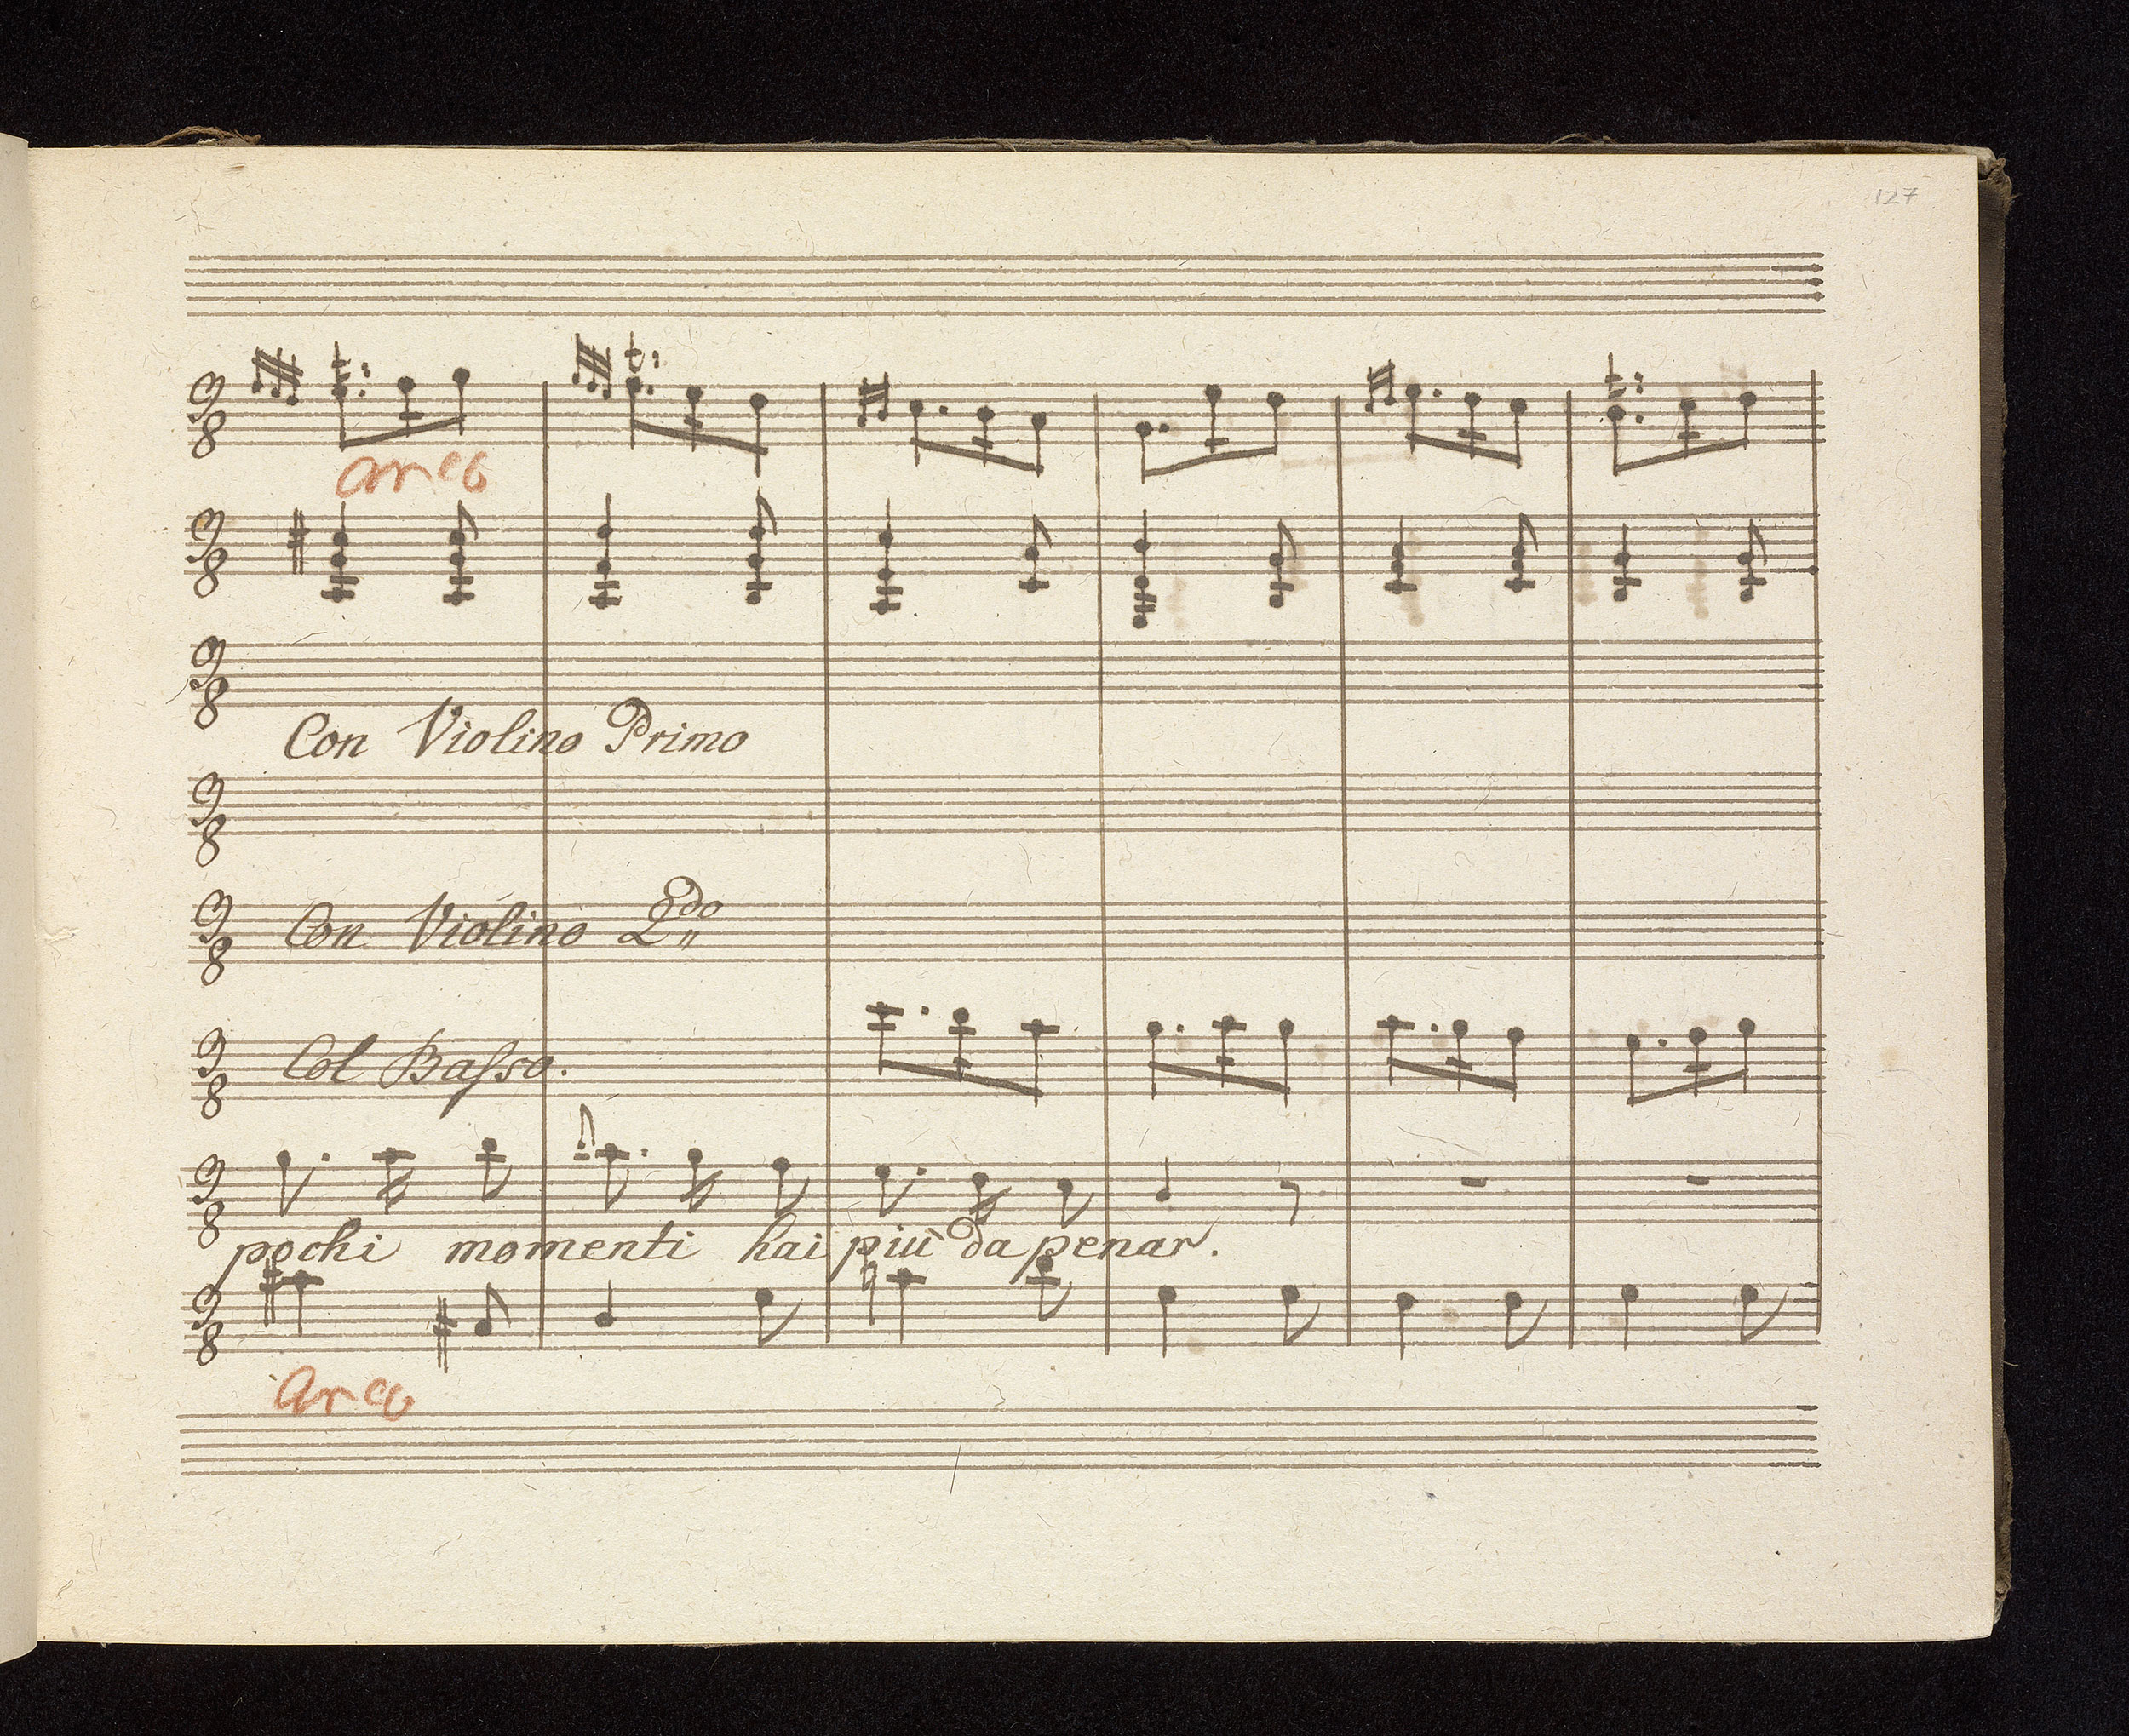 127
arco
Con Violino Primo
Con Violino 2do
Col Basso.
pochi momenti hai più da penar.
arco